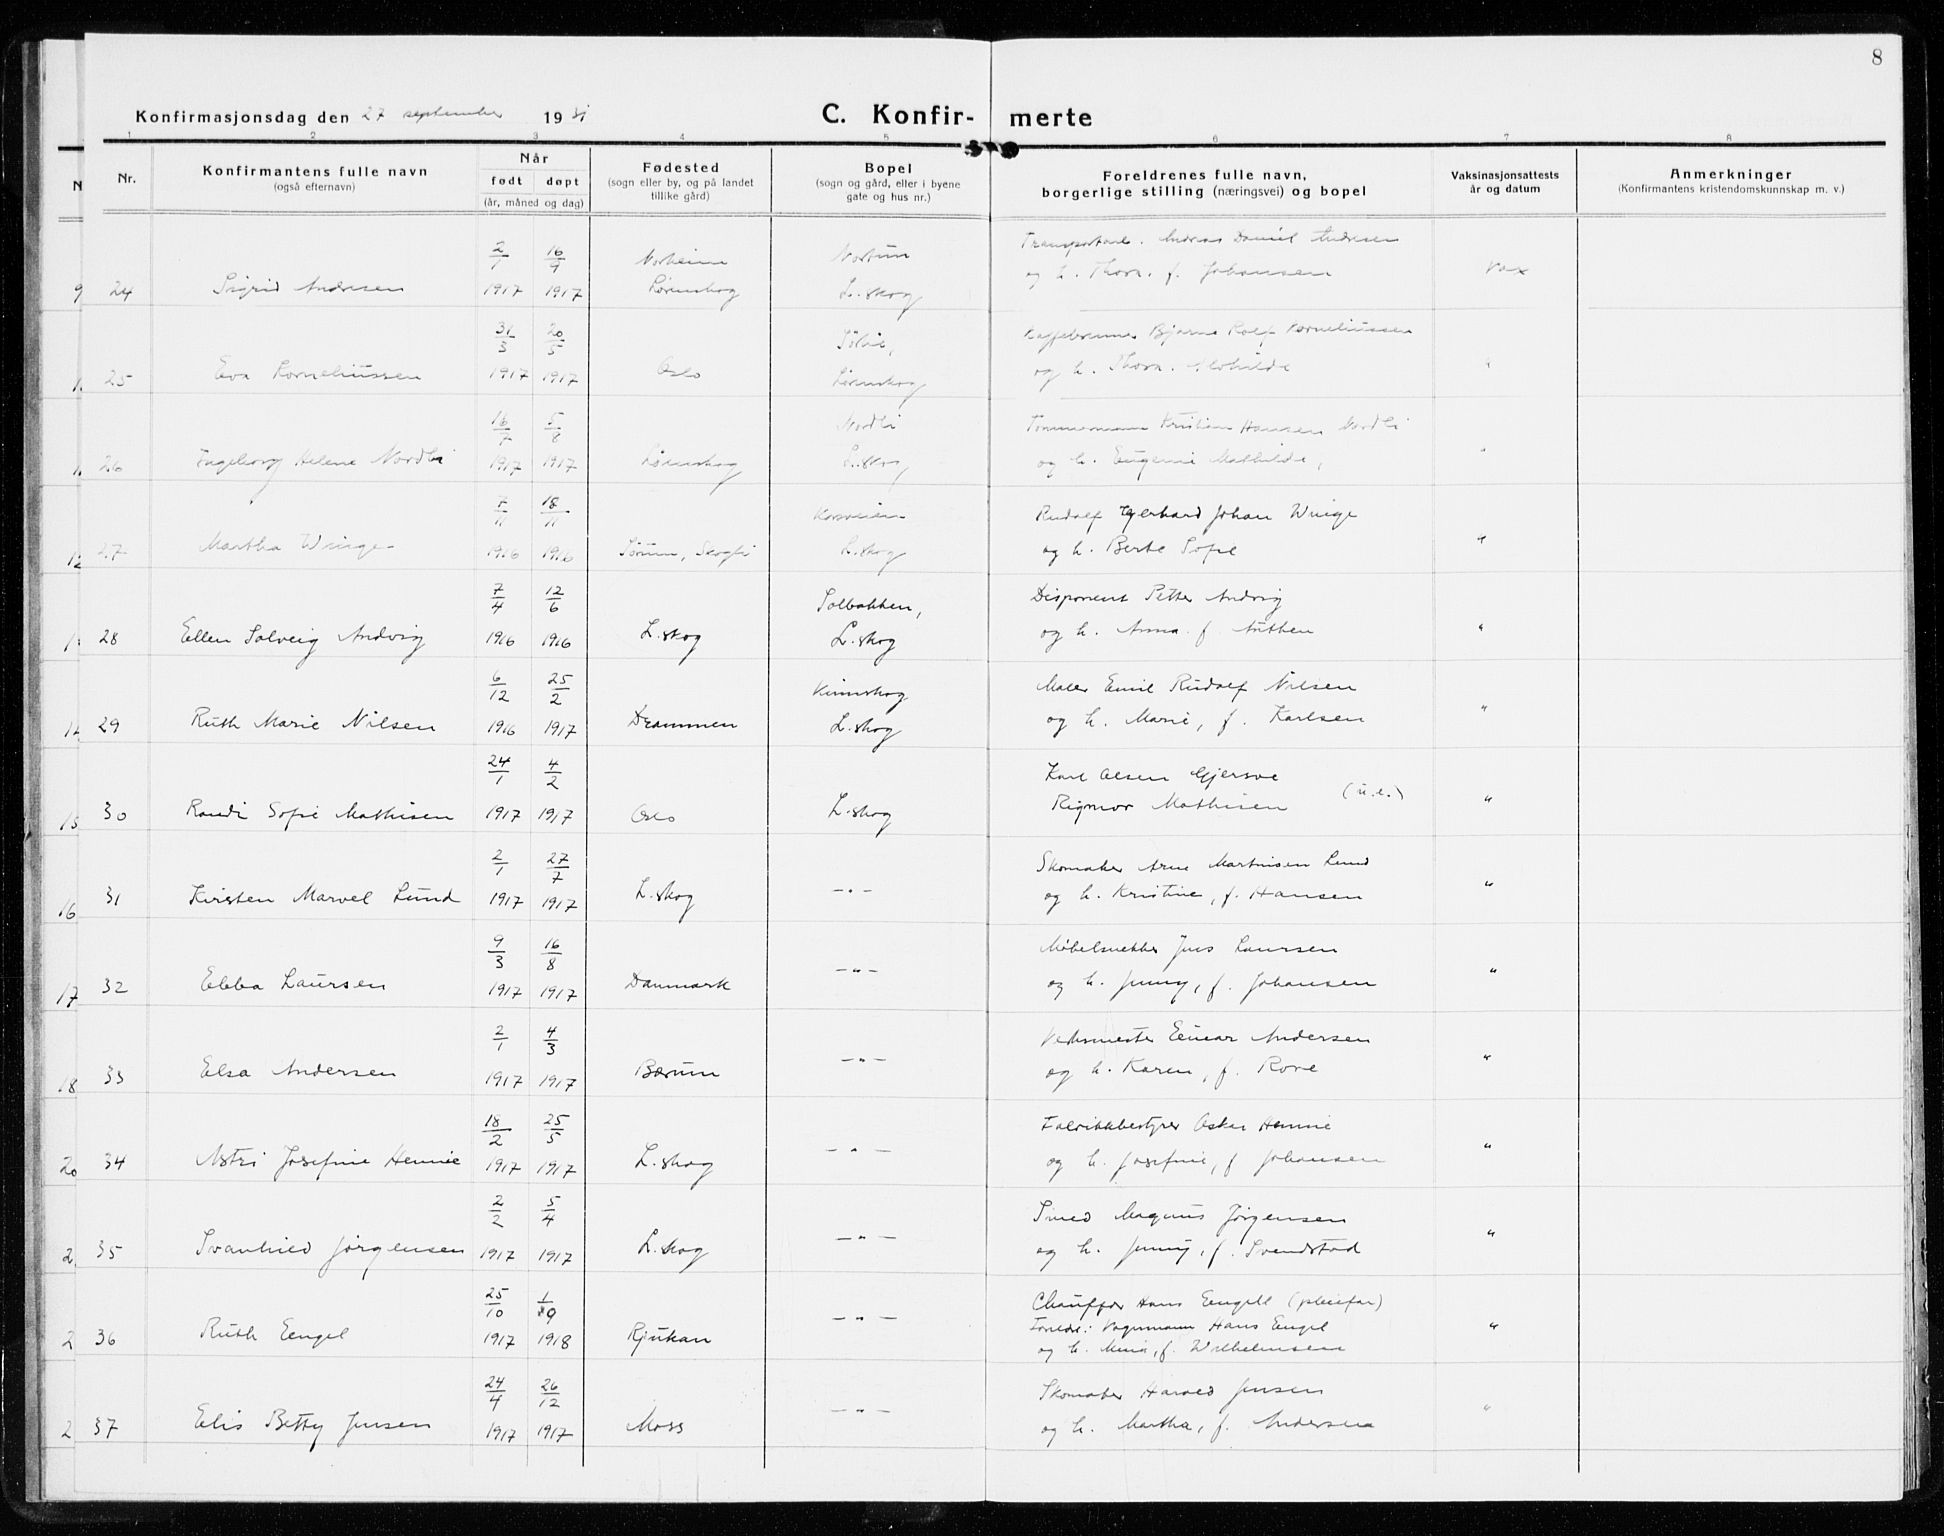 8
Konfirmasjonsdag den 27 september 1931 C. Konfir- merte
1 2 3 4 5 6 7 8
Nr. Konfirmantens fulle navn Når Fødested Bopel Foreldrenes fulle navn, Vaksinasjonsattests Anmerkninger
(også efternavn) født døpt (sogn eller by, og på landet (sogn og gård, eller i byene borgerlige stilling (næringsvei) og bopel år og datum (Konfirmantens kristendomskunnskap m. v.)
(år, måned og dag) tillike gård) gate og hus nr.)
2/1 16/9 Norheim Nortun Andreas Daniel Andresen
24 Sigrid Andresen 1917 1917 Lørenskog L.skog og h. Thora. f. Johansen vax
31/3 20/5 Kaffebrenner Bjarne Rolf Korneliussen
25 Eva Korneliussen 1917 1917 Oslo Lørenskog og h. Thora. "
16/7 5/8 Nordli Tømmermann Kristian Hansen Nordli
26 Ingeborg Helene Nordli 1917 1917 Lørenskog L.skog og h. Eugenie Mathilde, "
7/11 18/11 Korsveien Rudolf Gerhard Johan Winge
27 Martha Winge 1916 1916 Sørum, L.skog og h. Berte Sofie "
7/4 12/6 Solbakken, Disponent Petter Andvig
28 Ellen Solveig Andvig 1916 1916 L.skog L.skog og h. Anna. f. Authen "
6/12 25/2 Kinnskog Maler Emil Rudolf Nilsen
29 Ruth Marie Nilsen 1916 1917 Drammen L.skog og h. Marie, f. Karlsen "
24/1 4/2 Karl Olsen Gjersøe
30 Randi Sofie Mathisen 1917 1917 Oslo L.skog Rigmor Mathisen (u.e.) "
2/1 27/7 Skomaker Arne Martinsen Lund
31 Kirsten Marvel Lund 1917 1917 L.skog -"- og h. Kristine, f. Hansen "
9/3 16/8 Møbelsnekker Jens Laursen
32 Ebba Laursen 1917 1917 Danmark -"- og h. Jenny, f. Johansen "
2/1 4/3 Verksmester Einar Andersen
33 Elsa Andersen 1917 1917 Bærum -"- og h. Karen, f. Rove "
18/2 25/5 Fabrikkbestyrer Oskar Hennie
34 Astri Josefine Hennie 1917 1917 L.skog -"- og h. Josefine, f Johansen "
2/2 5/4 Smed Magnus Jørgensen
35 Svanhild Jørgensen 1917 1917 L.skog -"- og h. Jenny, f. Svendstad "
25/10 1/9 Chauffør Hans Engell (pleiefar)
36 Ruth Engel 1917 1918 Rjukan -"- Foreldre: Vognmann Hans Engel "
og h. f. Wilhelmsen
24/4 26/12 Skomaker Harald Jensen
37 Elis Betty Jensen 1917 1917 Moss -"- og h. Martha, f. Andersen "